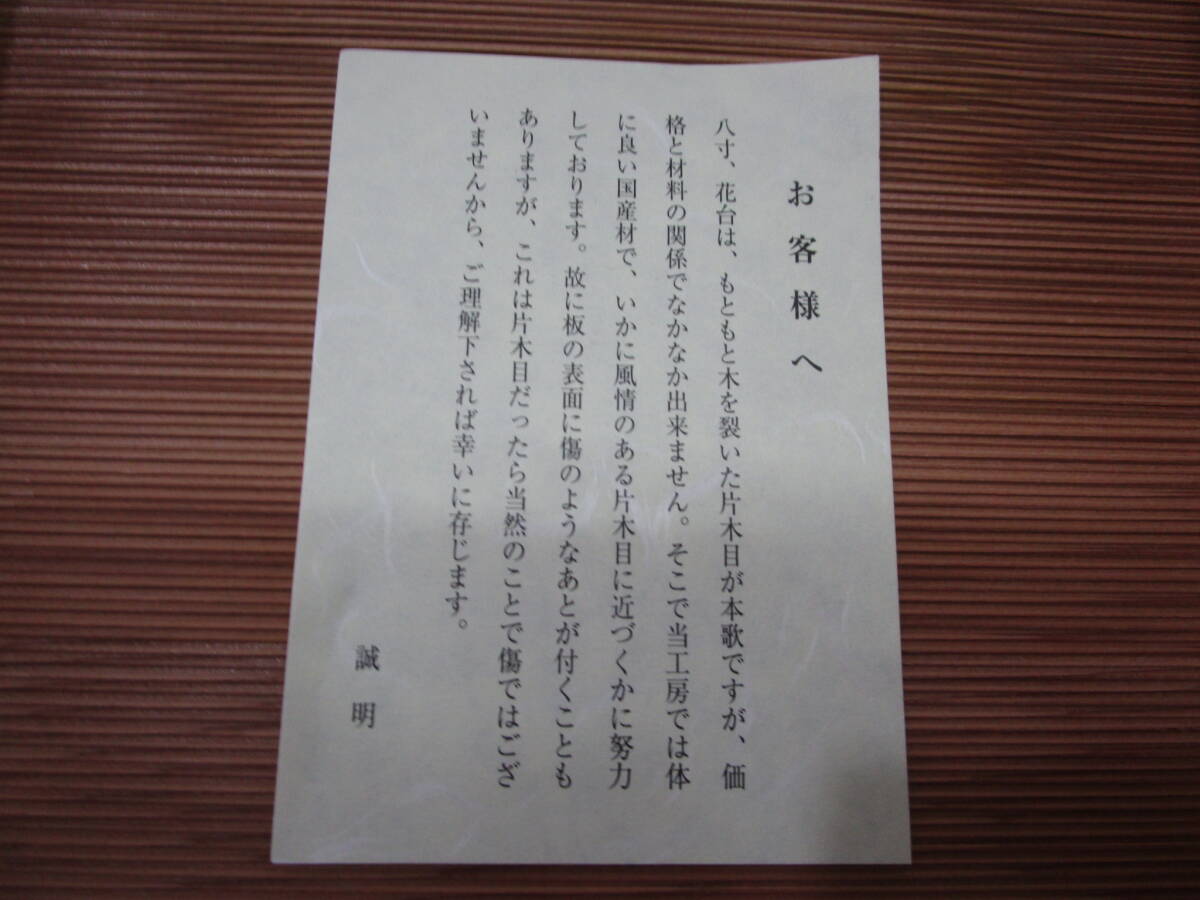 お客様へ
八寸、花台は、もともと木を裂いた片木目が本歌ですが、価
格と材料の関係でなかなか出来ません。そこで当工房では体
に良い国産材で、いかに風情のある片木目に近づくかに努力
しております。故に板の表面に傷のようなあとが付くことも
ありますが、これは片木目だったら当然のことで傷ではござ
いませんから、ご理解下されば幸いに存じます。
誠明